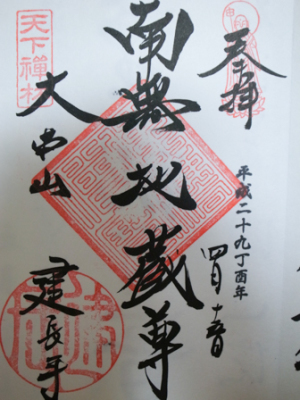 奉拝
平成二十九丁酉年
四月十日
南無地蔵尊
天下禪林
大本山
建長寺